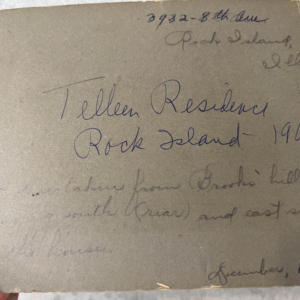 3932-8th Ave
Rock Island,
Ill
Telleen Residence
Rock Island 190
taken from Brooks' hill
south (rear) and east s
house
December,